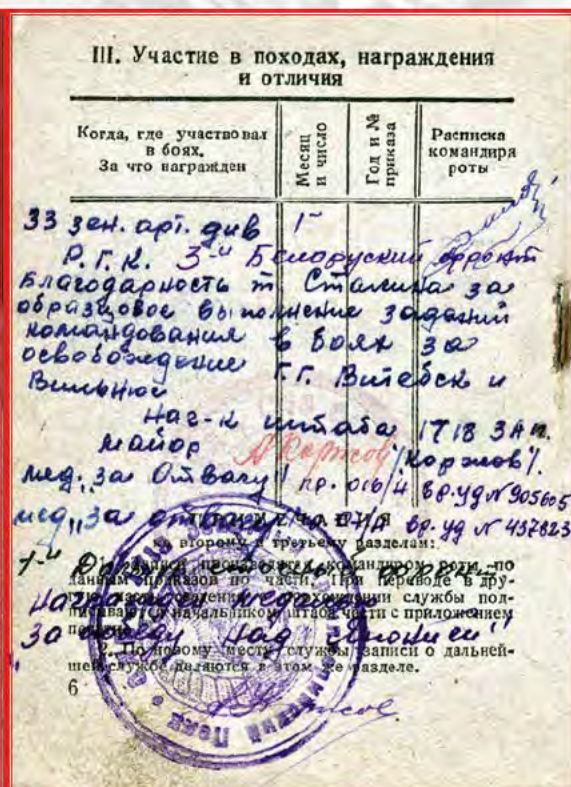 III. Участие в походах, награждения
и отличия
Когда, где участвовал
в боях.
За что награжден
Месяц
и число
Год и №
приказа
Расписка
командира
роты
33 зен. арт. див
Р.Г.К. 3-й Белоруский фронт
Благодарность т. Сталина за
образцовое выполнение заданий
командования в боях за
освобождение Г.Г. Витебск и
Вильнюс
Нач-к штаба 1718 ЗАП.
майор А Коржов /Коржов/.
мед. "За Отвагу" пр. 016/н вр. уд N 905605
мед. "За отвагу" вр. уд N 437823
ПРИМЕЧАНИЯ
ко второму и третьему разделам:
1-й Дальневосточный фронт
1. Записи производятся командиром роты по
данным приказов по части. При переводе в дру-
Награжден медалью
гую часть сведения о прохождении службы под-
писываются начальником штаба части с приложением
"За победу над Японией"
печати.
2. По новому месту службы записи о дальней-
шей службе делаются в этом же разделе.
6
Коржов